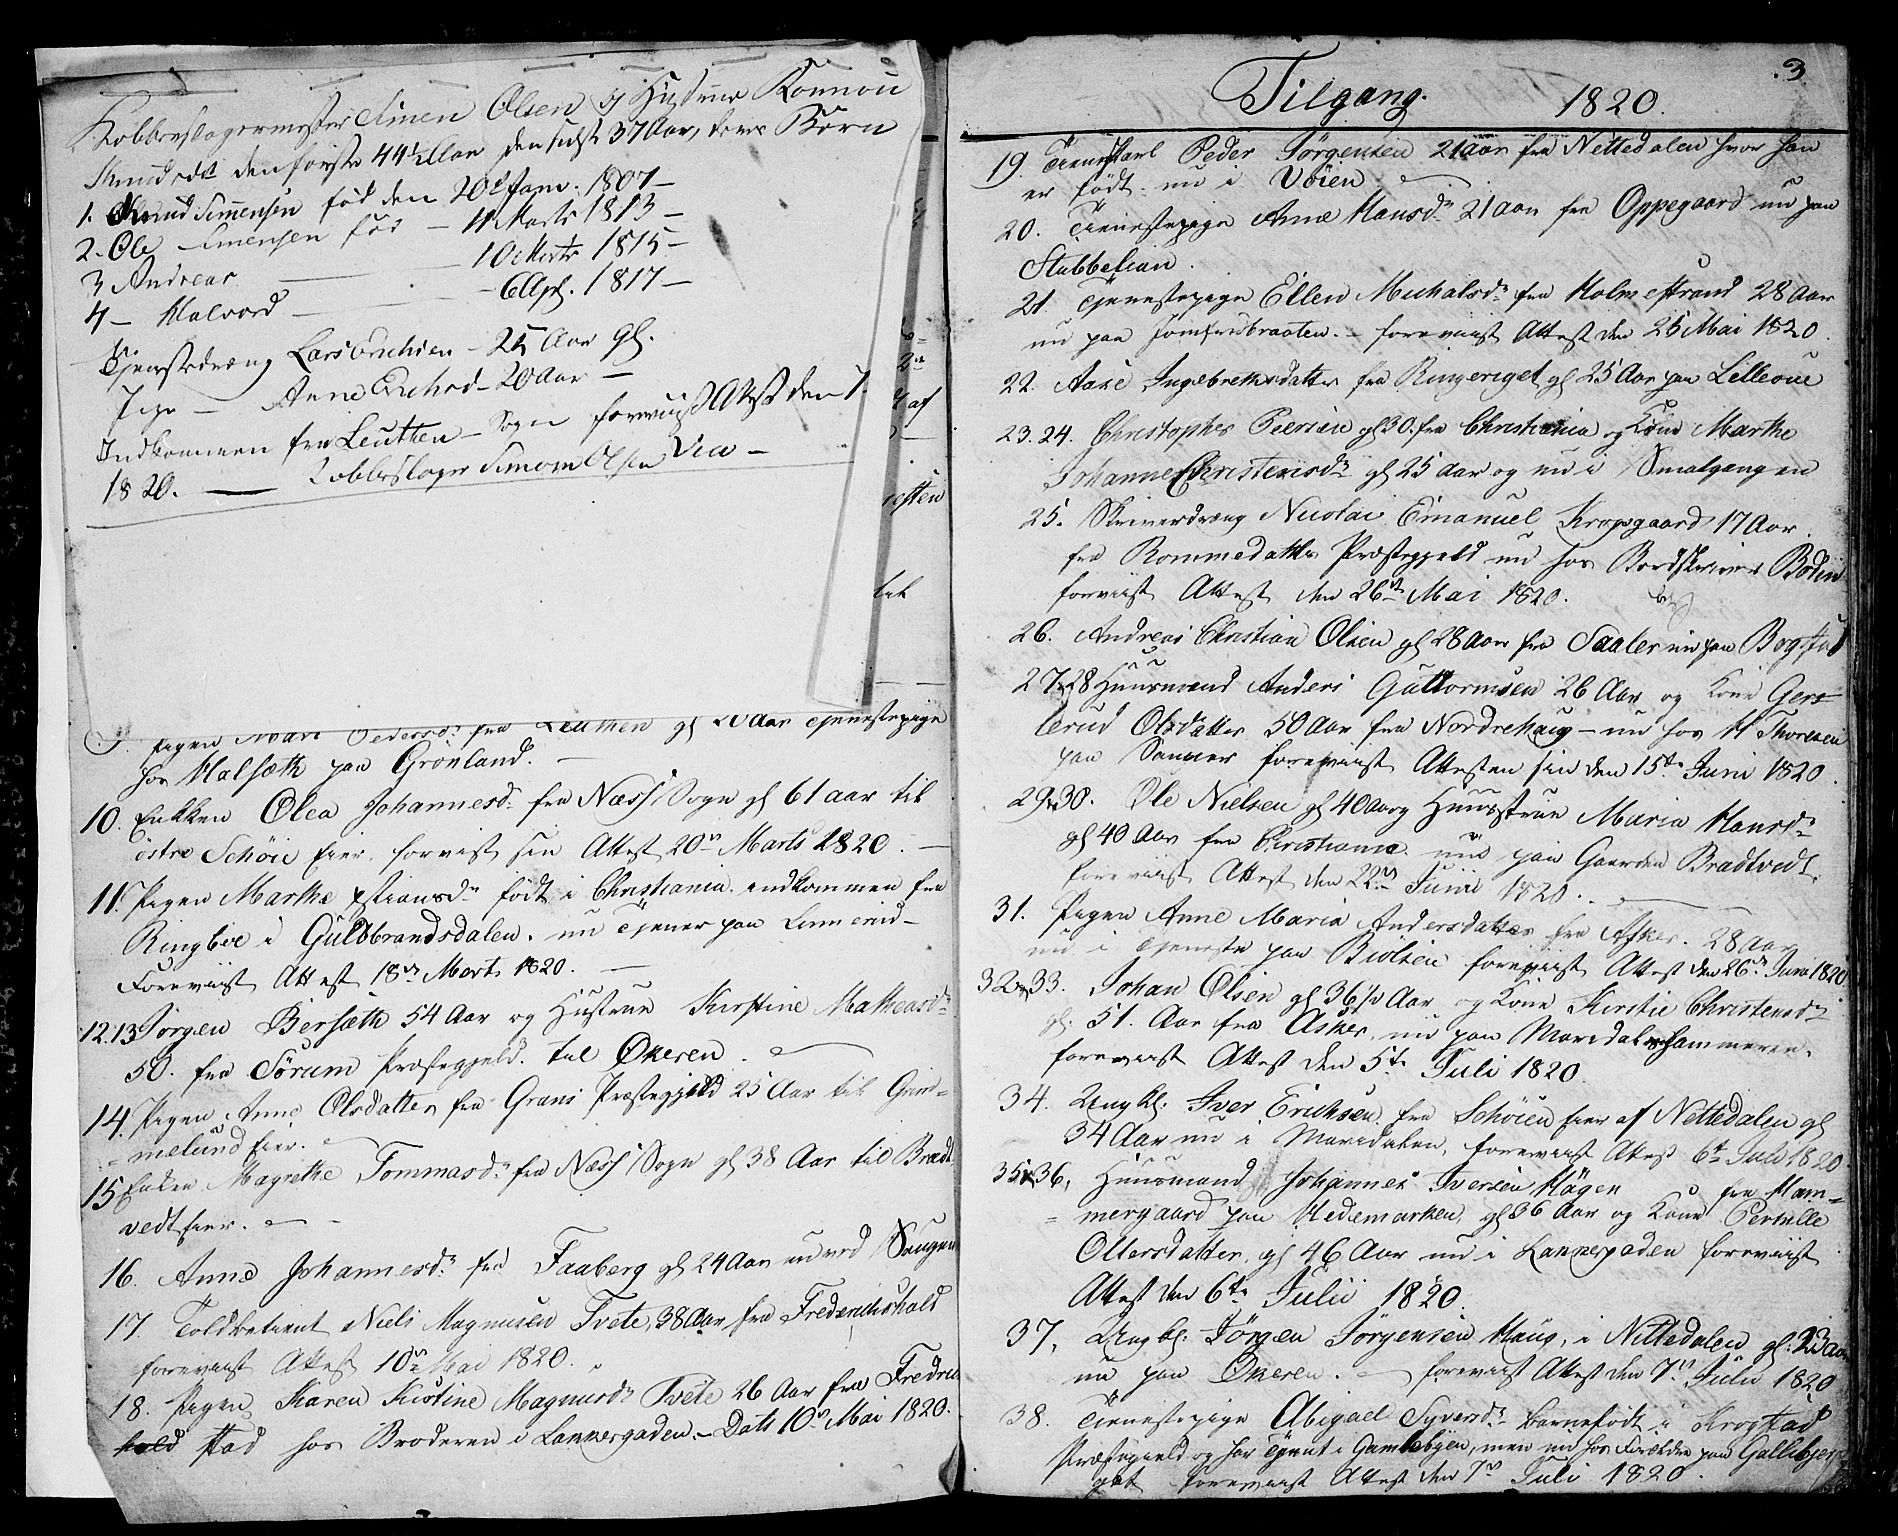 Kobberslagermester Simen Olsen og Hustrue Konnou
Knudsdt den første 44½ Aar den sidste 37 Aar, deres Børn
1. Knud Simensen fød den 20de Janv. 1807 —
2. Ole Simensen fød — 11 Marts 1813 —
3 Andreas — 10 Marts 1815 —
4 — Halvord — 6 Apl. 1817 —
Tjenestedreng Lars Erichsen — 25 Aar gl.
Pige — Anne Erichsd — 20 Aar —
Indkommen fra Leuthen — Sogn foreviist Attest den 7.
1820. — Kobberslager Simon Olsen
2
af
esten
til
9. Pigen Mari Pedersd. fra Leuthen gl 20 Aar Tjenestepige
hos Malsæth paa Grönland. —
10. Enkken Olea Johannesd. fra Næss Sogn gl 61 aar til
östre Schöie Eier. forevist sin Attest 20de Marts 1820. —
11. Pigen Marthe Xstiansd. født i Christiania. indkommen fra
Ringboe i Guldbrandsdalen. nu Tjener paa Linnerud —
Foreviist Attest 18de Marts 1820. —
12.13 Jörgen Bersæth 54 Aar og Hustrue Kirstine Matheasd.
50. fra Sörum Præstegjeld. til Økeren.
14. Pigen Anne Olsdatter fra Grans Præstegjeld 25 Aar til Grim=
=melund Eier.
15 Enken Magrethe Tommasd. fra Næss Sogn gl 38 Aar til Bradt
vedt Eier. —
16. Anne Johannesd. fra Faaberg gl 24 Aar nu ved Saugen
17. Toldbetient Niels Magnusen Tvete, 38 Aar fra Frederichshald
foreviist Attest 10de Mai 1820.
18. Pigen Karen Kistine Magnusd. Tvete 26 Aar fra Fredrich
stad hos Broderen i Lakkegaden. — Dato 10de Mai 1820.
3
Tilgang. 1820.
19. Tienestkarl Peder Jörgensen 21 aar fra Nettedalen hvor han
er født. nu i Vöien.
20. Tienestepige Anne Hansd. 21 aar fra Oppegaard nu paa
Stubbelian.
21. Tjenestepige Ellen Michalsd. fra Holmestrand 28 Aar
nu paa Jomfrubraaten. — foreviist Attest den 25 Mai 1820.
22. Aase Ingebrethsdatter fra Ringeriget gl 25 Aar paa Lilleoue
23.24. Christopher Peersen gl 30. fra Christiania og Kone Marthe
Johanne Christensd. gl 25 aar og nu i Smalgangen
25. Skriverdreng Nicolai Emanuel Kropsgaard 17 Aar.
fra Rommedahls Præstegjeld nu hos Bordskriver Bodin
foreviist Attest den 26de Mai 1820.
26. Andreas Christian Olsen gl 28 Aar fra Saaler nu paa Bogstad
27&28 Huusmand Anders Guttormsen 26 Aar og Kone Gers=
terud Olsdatter 50 Aar fra Nordrehaug — nu hos H Thoresen
paa Sanner foreviist Attesten sin den 15de Juni 1820.
29&30. Ole Nielsen gl 40 Aar og Huustrue Maria Hansd.
gl 40 Aar fra Christiania nu paa Gaarden Bradtvedt.
foreviist Attest den 22de Junii 1820.
31. Pigen Anne Maria Andersdatter fra Asker. 28 Aar
nu i Tjeneste paa Biölsen foreviist Attest den 26de Juni 1820
32&33. Johan Olsen gl 36½ Aar og Kone Kirstie Christensd.
gl. 51. Aar fra Asker, nu paa Maridalshammeren.
foreviist Attest den 5te Juli 1820
34. Ungkl. Iver Erichsen fra Schöien Eier af Nettedalen gl
34 Aar nu i Maridalen, foreviist Attest 6te Juli 1820
35&36. Huusmand Johannes Iversen Hagen fra Ham=
=mergaard paa Hedemarken, gl 36 Aar og Kone Pernille
Ollersdatter gl 46 Aar nu i Lakkegaden foreviist
Attest den 6te Julii 1820.
37. Ungkl. Jörgen Jörgensen Haug, i Nittedalen gl. 23 aar
nu paa Økeren. — foreviist Attest den 7de Juli 1820
38. Tienestepige Abigael Syversd. barnefødt i Krogstad
Præstegield og har Tjent i Gamlebyen, men nu hos Forældre paa Galliebjer=
get foreviist Attest den 7de Juli 1820.